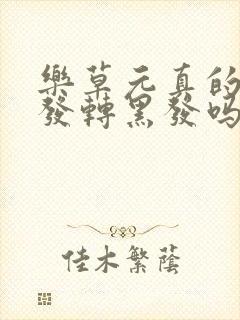 樂草元真的
發轉黑發嗎
佳木繁蔭